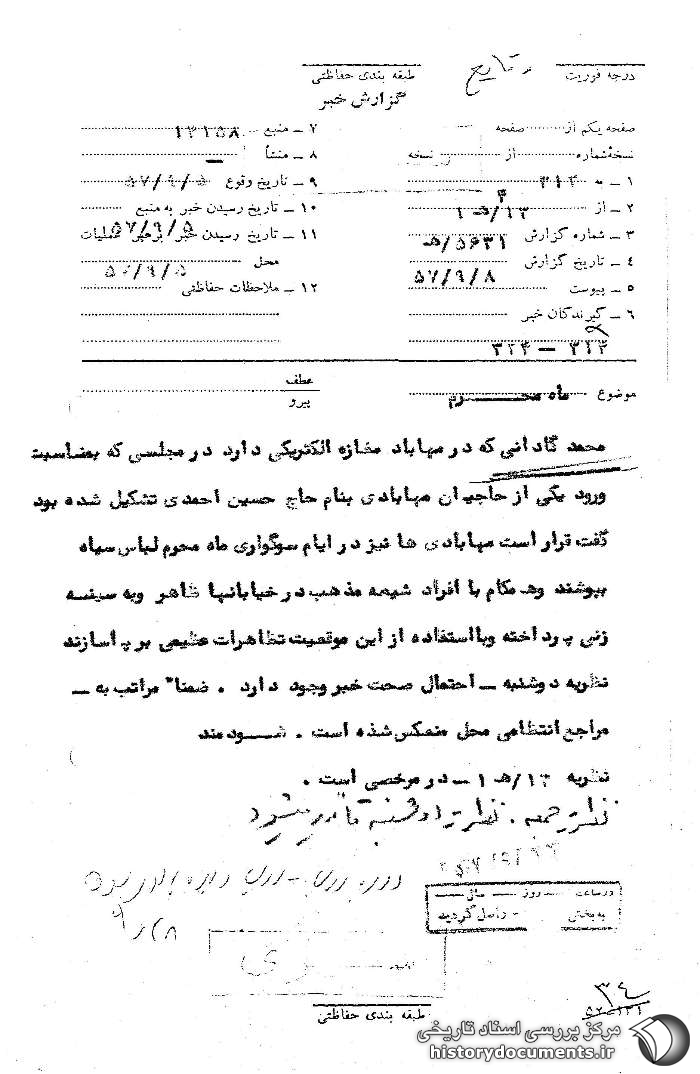 درجه فوریت
طبقه بندی حفاظتی
گزارش خبر
صفحه یکم از صفحه
نسخه شماره از نسخه
۱ – به ۳۱۲
۲ – از ۱ه‍/۱۳
۳ – شماره گزارش ۵۶۳۱/ه‍
۴ – تاریخ گزارش ۵۷/۹/۸
۵ – پیوست
۶ – گیرندگان خبر
۳۱۲ – ۳۲۴
۷ – منبع ۱۲۱۵۸
۸ – منشأ –
۹ – تاریخ وقوع ۵۷/۹/۵
۱۰ – تاریخ رسیدن خبر به منبع
۱۱ – تاریخ رسیدن خبر برهبر عملیات
محل ۵۷/۹/۵
۱۲ – ملاحظات حفاظتی
موضوع ماه محرم
عطف
پیرو
محمد گادانی که در مهاباد مغازه الکتریکی دارد در مجلسی که بمناسبت
ورود یکی از حاجیان مهابادی بنام حاج حسین احمدی تشکیل شده بود
گفت قرار است مهابادی ها نیز در ایام سوگواری ماه محرم لباس سیاه
بپوشند وهمگام با افراد شیعه مذهب در خیابانها ظاهر وبه سینه
زنی پرداخته وبااستفاده از این موقعیت تظاهرات عظیمی برپاسازند
نظریه دوشنبه – احتمال صحت خبر وجود دارد . ضمنا" مراتب به –
مراجع انتظامی محل منعکس شده است . خودمند
نظریه ۱۳/ه‍ ۱ – در مرخصی است .
نظریه جمعه . نظریه دوشنبه تأیید میشود
در ساعت روز سال
به بخش واصل گردید
۳۴
۵۲-۱۲۱
طبقه بندی حفاظتی
مرکز بررسی اسناد تاریخی
historydocuments.ir